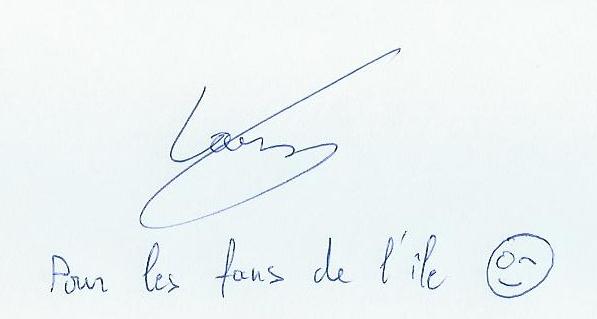 Pour les fans de l'île